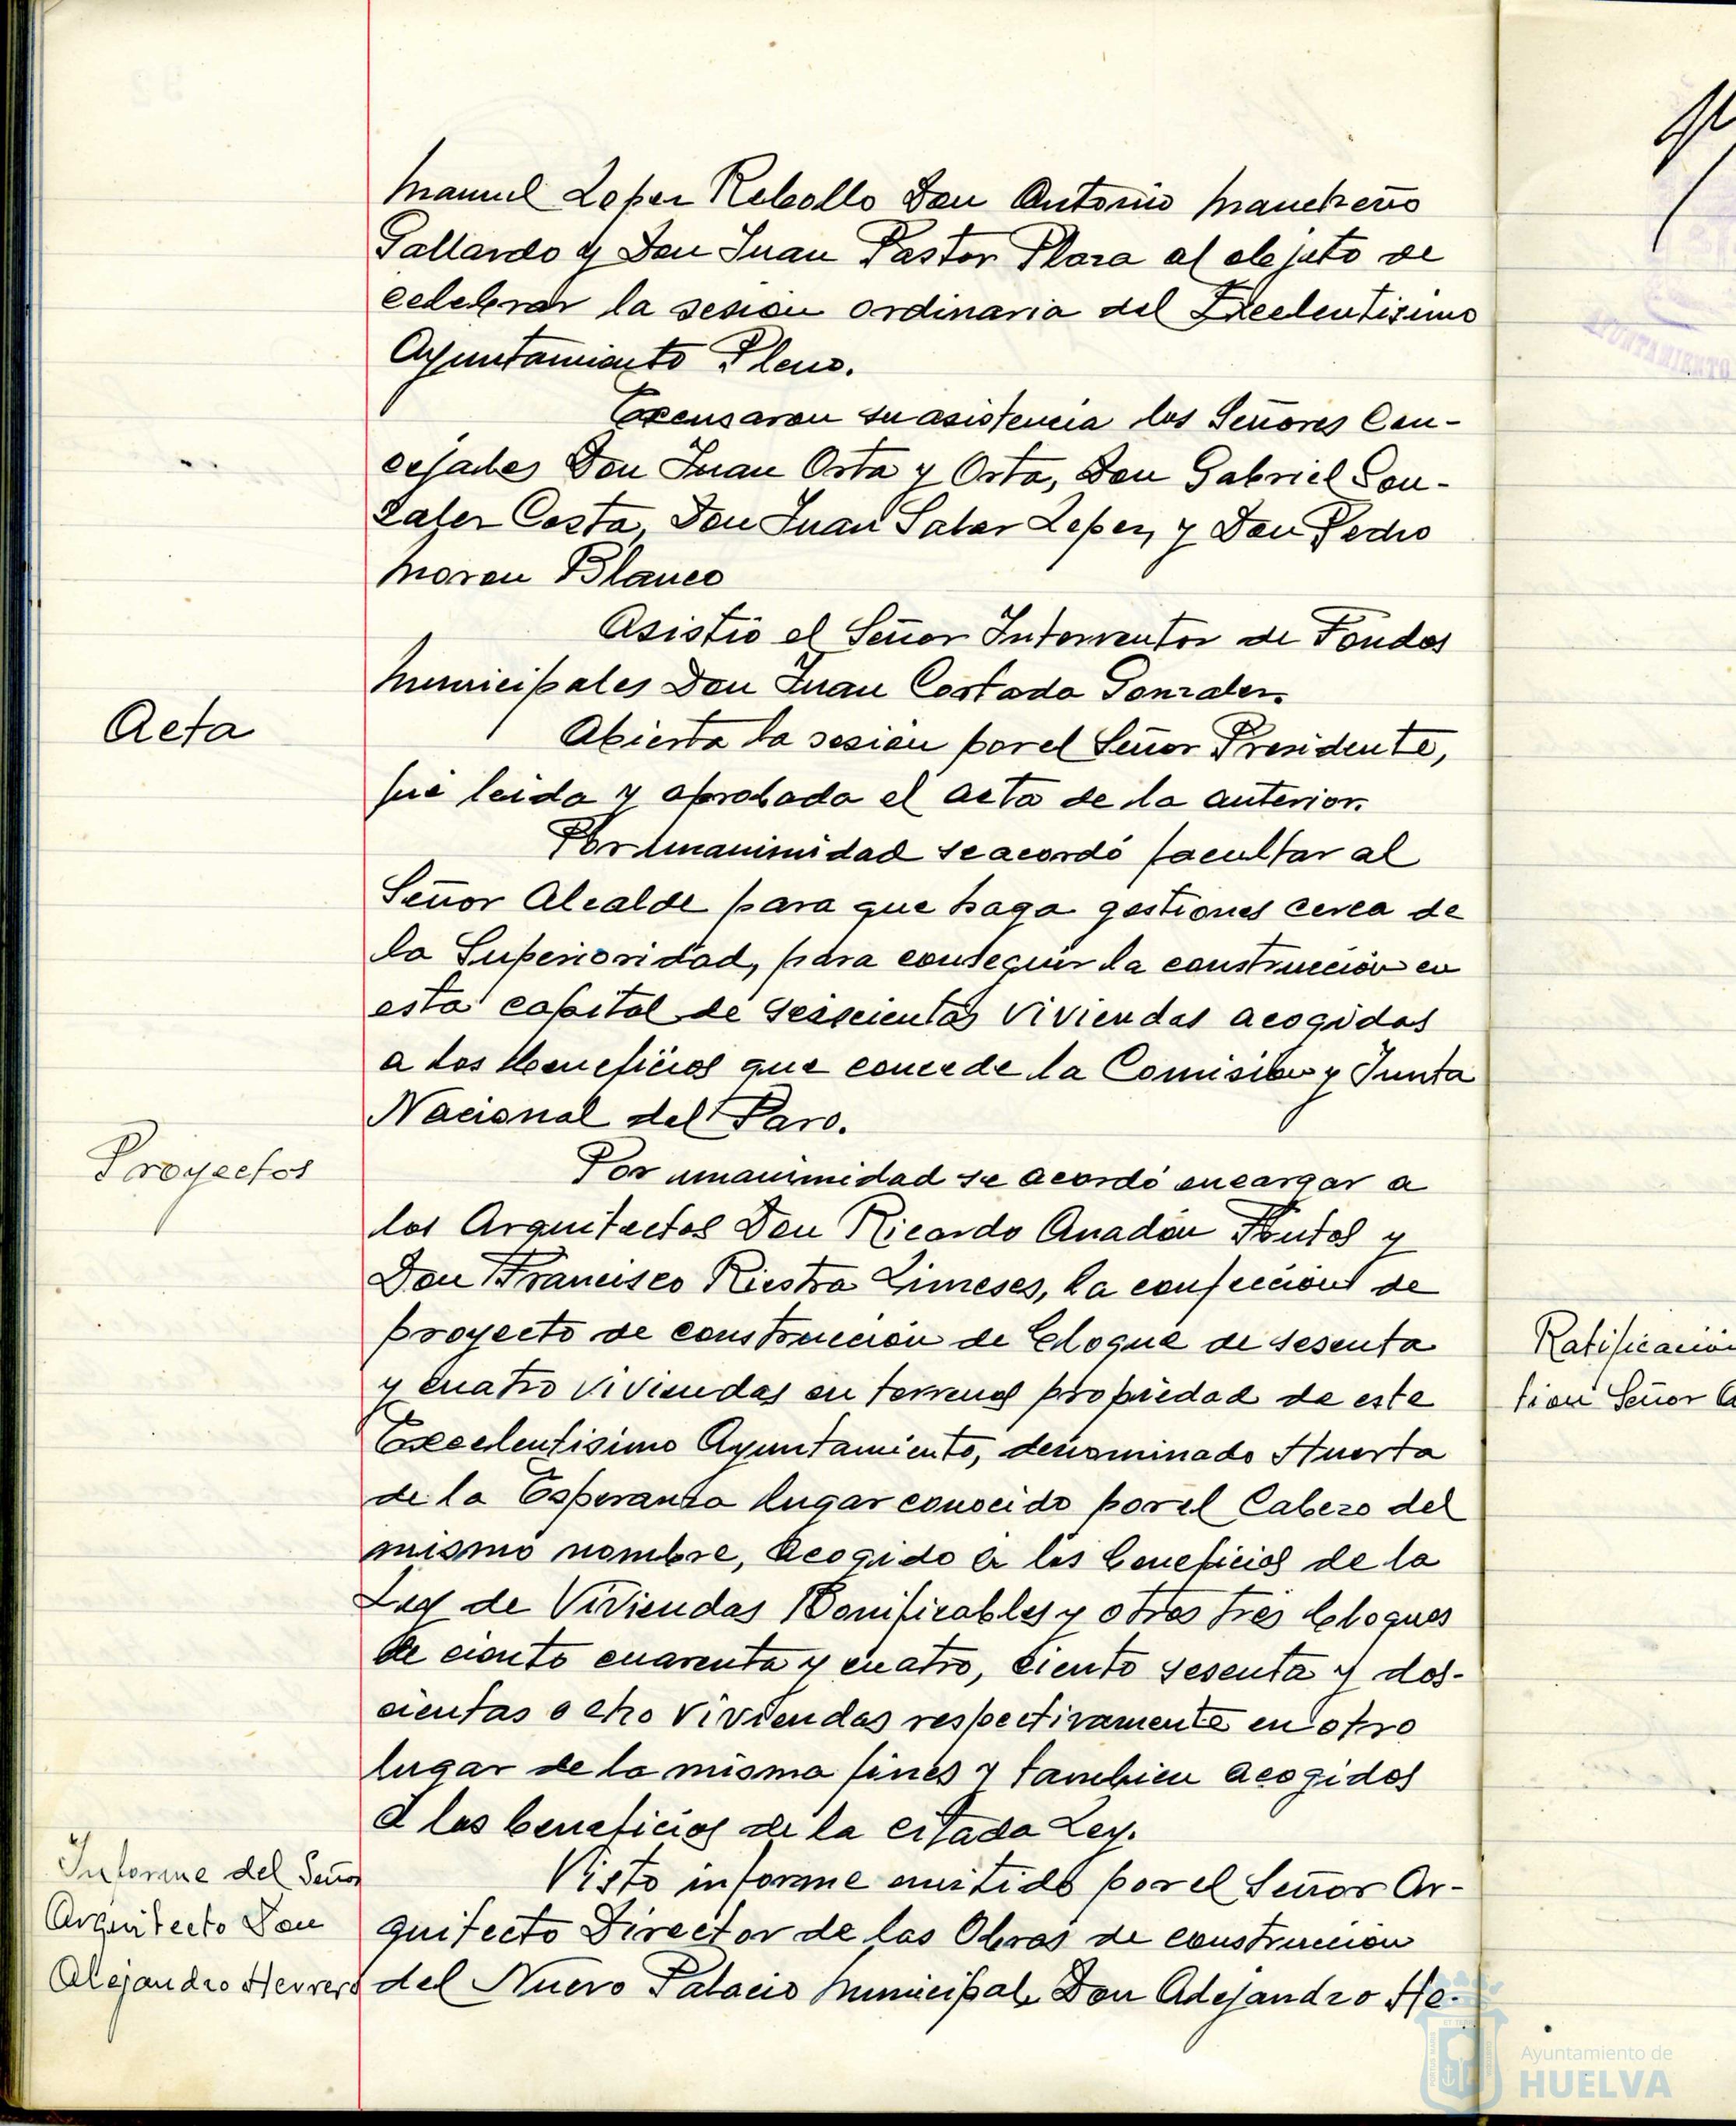 Manuel Lopez Rebollo Don Antonio Mancheño
Gallardo y Don Juan Pastor Plaza al objeto de
celebrar la sesion ordinaria del Excelentisimo
Ayuntamiento Pleno.
Excusaron su asistencia los Señores Con-
cejales Don Juan Orta y Orta, Don Gabriel Gon-
zalez Costa, Don Juan Salas Lopez, y Don Pedro
Moron Blanco
Asistió el Señor Interventor de Fondos
Municipales Don Juan Costado Gonzalez.
Acta
Abierta la sesion por el Señor Presidente,
fué leida y aprobada el acta de la anterior.
Por Unanimidad se acordó facultar al
Señor Alcalde para que haga gestiones cerca de
la Superioridad, para conseguir la construcción en
esta capital de seiscientas viviendas acogidas
a los beneficios que concede la Comisión y Junta
Nacional del Paro.
Proyectos
Por unanimidad se acordó encargar a
los Arquitectos Don Ricardo Anadón Frutos y
Don Francisco Riestra Limeses, la confección de
proyecto de construcción de bloque de sesenta
y cuatro viviendas en terrenos propiedad de este
Excelentisimo Ayuntamiento, denominado Huerta
de la Esperanza lugar conocido por el Cabezo del
mismo nombre, acogido a los beneficios de la
Ley de Viviendas Bonificables y otros tres bloques
de ciento cuarenta y cuatro, ciento sesenta y dos-
cientas ocho viviendas respectivamente en otro
lugar de la misma fines y tambien acogidos
a los beneficios de la citada Ley.
Informe del Señor
Arquitecto Don
Alejandro Herrero
Visto informe emitido por el Señor Ar-
quitecto Director de las Obras de construccion
del Nuevo Palacio Municipal, Don Alejandro He-
Ratificación
tion Señor
AYUNTAMIENTO
Ayuntamiento de
HUELVA